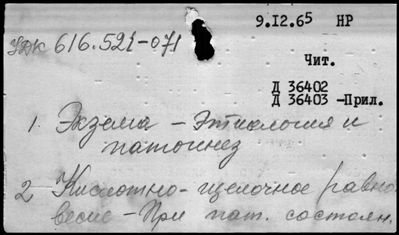 9.I2.65 НР
УДК 616.521-071
Чит.
Д 36402
Д 36403 -Прил.
1. Экзема - Этиология и
патогинез
2 Кислотно-щелочное равно
весие - При пат. состоян.